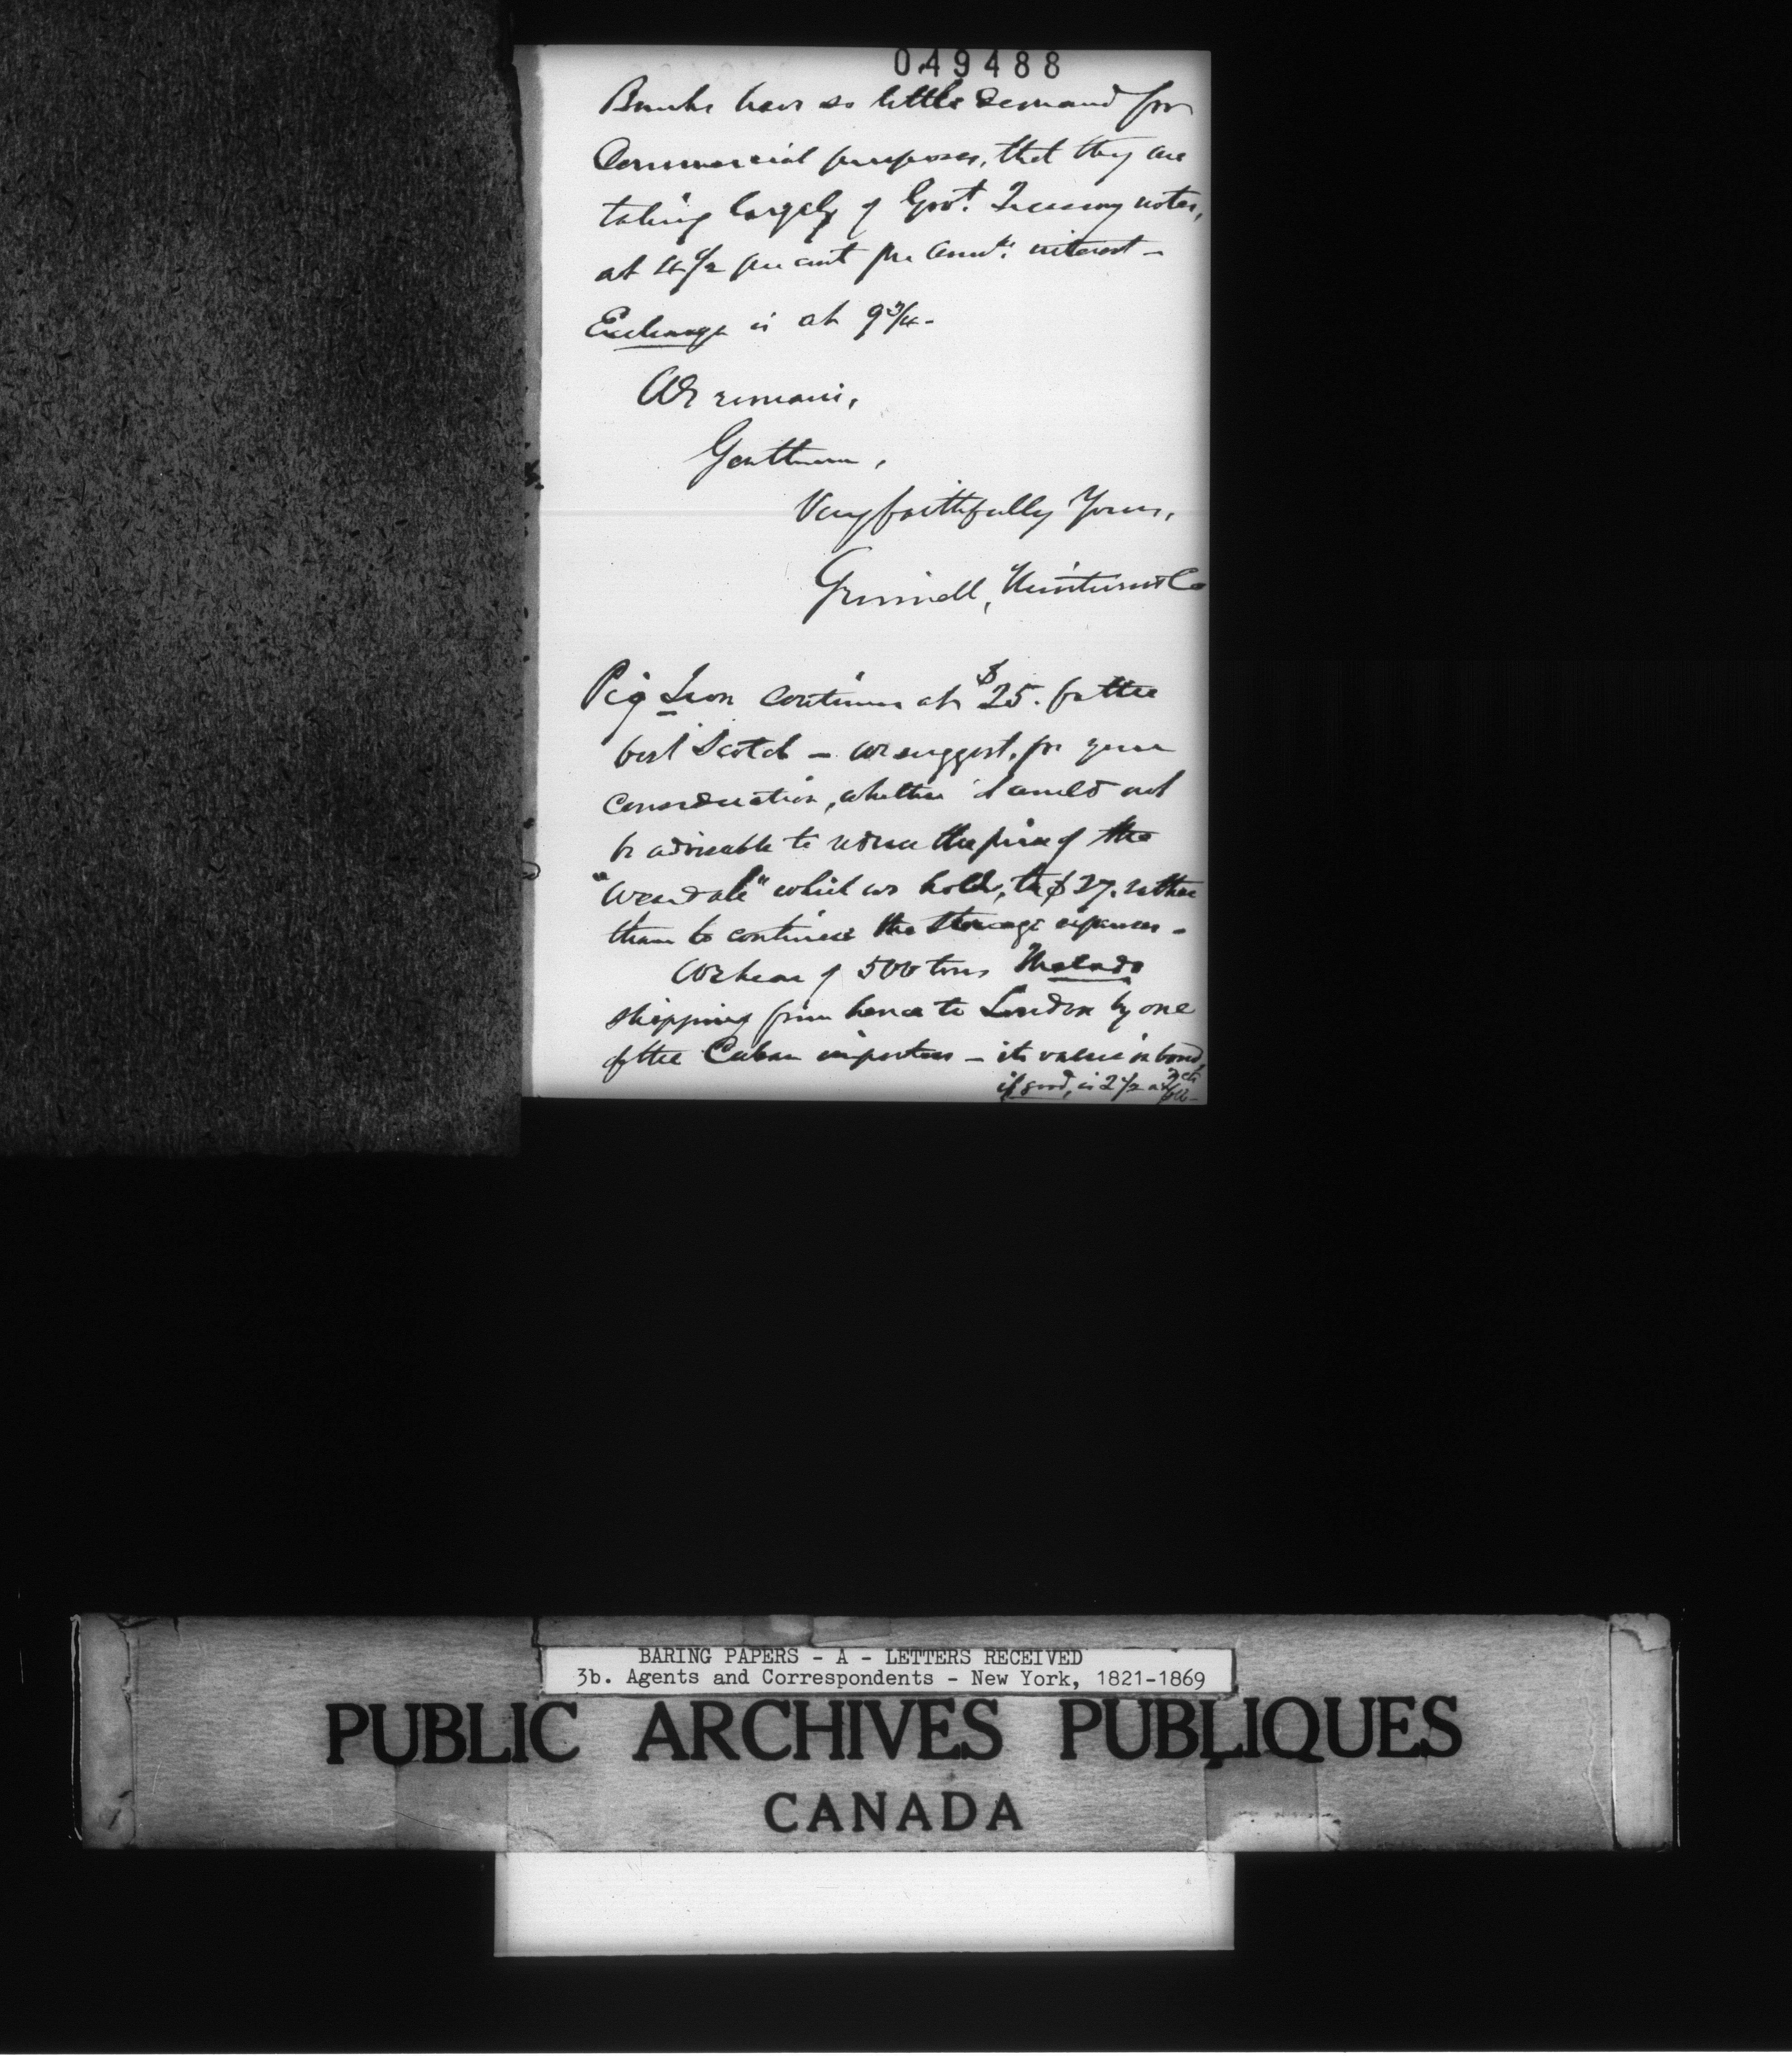 049488
Banks have so little demand for
Commercial purposes, that they are
taking largely of Govt. Treasury notes,
at 4 1/2 per cent per annm. interest -
Exchange is at 9 3/4 -
We remain,
Gentlemen,
Very faithfully Yours,
Grinnell, Minturn & Co
Pig Iron continues at $25. for the
best Scotch - we suggest, for your
consideration, whether it would not
be adviseable to reduce the price of the
which we hold, to $27. rather
than to continue the storage expenses -
We hear of 500 tons Melado
shipping from hence to London by one
of the Cuban importers - its value in bond,
if good, is 2 1/2 a
BARING PAPERS - A - LETTERS RECEIVED
3b. Agents and Correspondents - New York, 1821-1869
PUBLIC ARCHIVES PUBLIQUES
CANADA